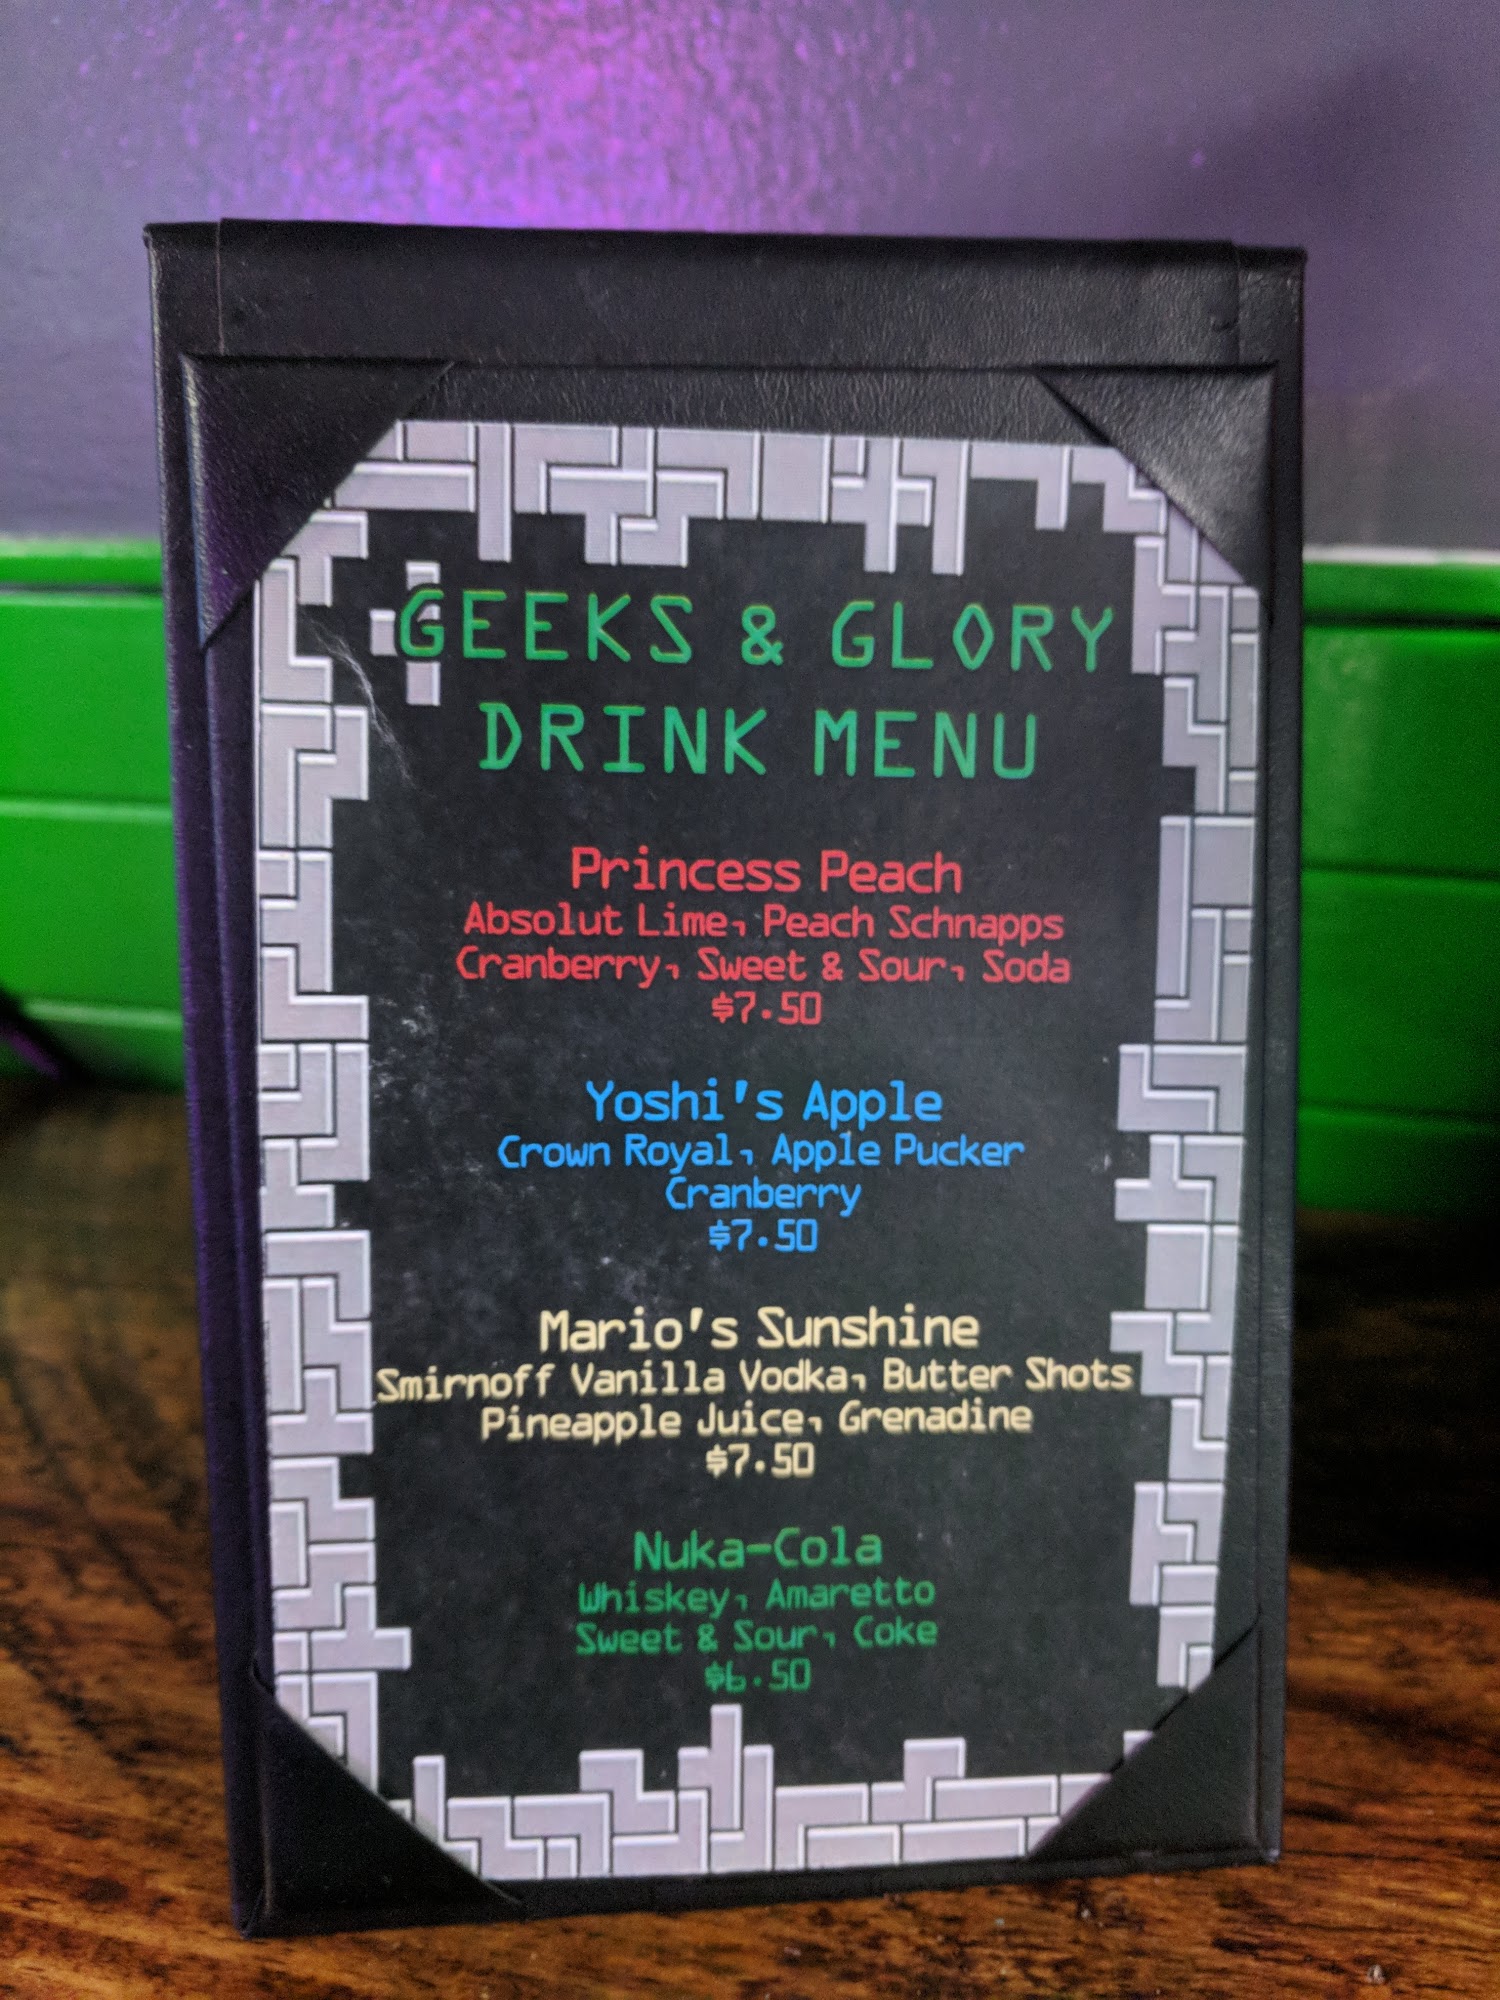 GEEKS & GLORY
DRINK MENU
Princess Peach
Absolut Lime, Peach Schnapps
Cranberry, Sweet & Sour, Soda
$7.50
Yoshi's Apple
Crown Royal, Apple Pucker
Cranberry
$7.50
Mario's Sunshine
Smirnoff Vanilla Vodka, Butter Shots
Pineapple Juice, Grenadine
$7.50
Nuka-Cola
Whiskey, Amaretto
Sweet & Sour, Coke
$6.50